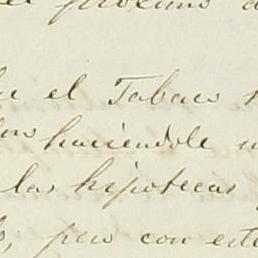 el proximo
el Tabaco
haciendole
las hipotecas
pero con este